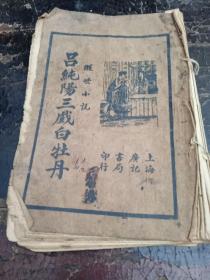 醒世小說
呂純陽三戲白牡丹
上海
廣記
書局
印行